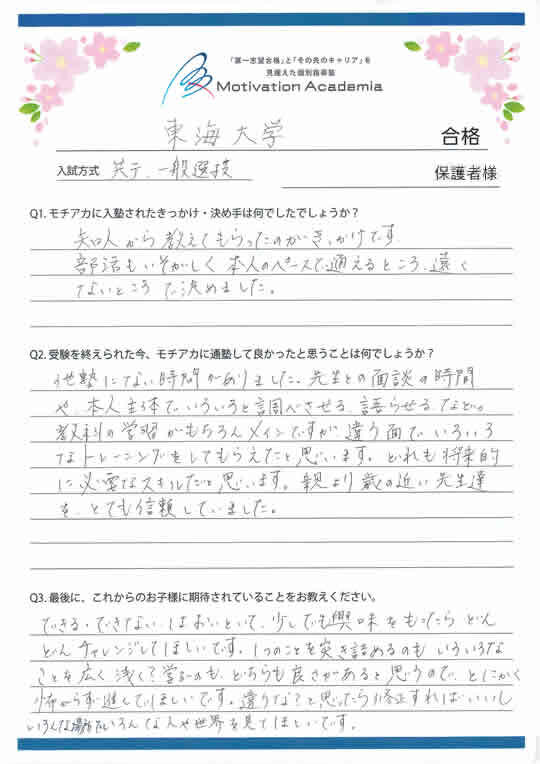 「第一志望合格」と「その先のキャリア」を
見据えた個別指導塾
Motivation Academia
東海大学 合格
入試方式 共テ、一般選抜 保護者様
Q1. モチアカに入塾されたきっかけ・決め手は何でしたでしょうか？
知人から教えてもらったのがきっかけです
部活もいそがしく本人のペースで通えるところ、遠く
ないところで決めました。
Q2. 受験を終えられた今、モチアカに通塾して良かったと思うことは何でしょうか？
他塾にない時間がありました。先生との面談の時間
や、本人主体でいろいろと調べさせる、語らせる、などの。
教科の学習がもちろんメインですが違う面でいろいろ
なトレーニングをしてもらえたと思います。どれも将来的
に必要なスキルだと思います。親より歳の近い先生達
を、とても信頼していました。
Q3. 最後に、これからのお子様に期待されていることをお教えください。
できる・できないはおいといて、少しでも興味をもったらどん
どんチャレンジしてほしいです。1つのことを突き詰めるのもいろいろな
ことを広く浅く？学ぶのも、どちらも良さがあると思うので、とにかく
怖がらず進んでほしいです。違うな？と思ったら修正すればいいし
いろんな場所でいろんな人や世界を見てほしいです。